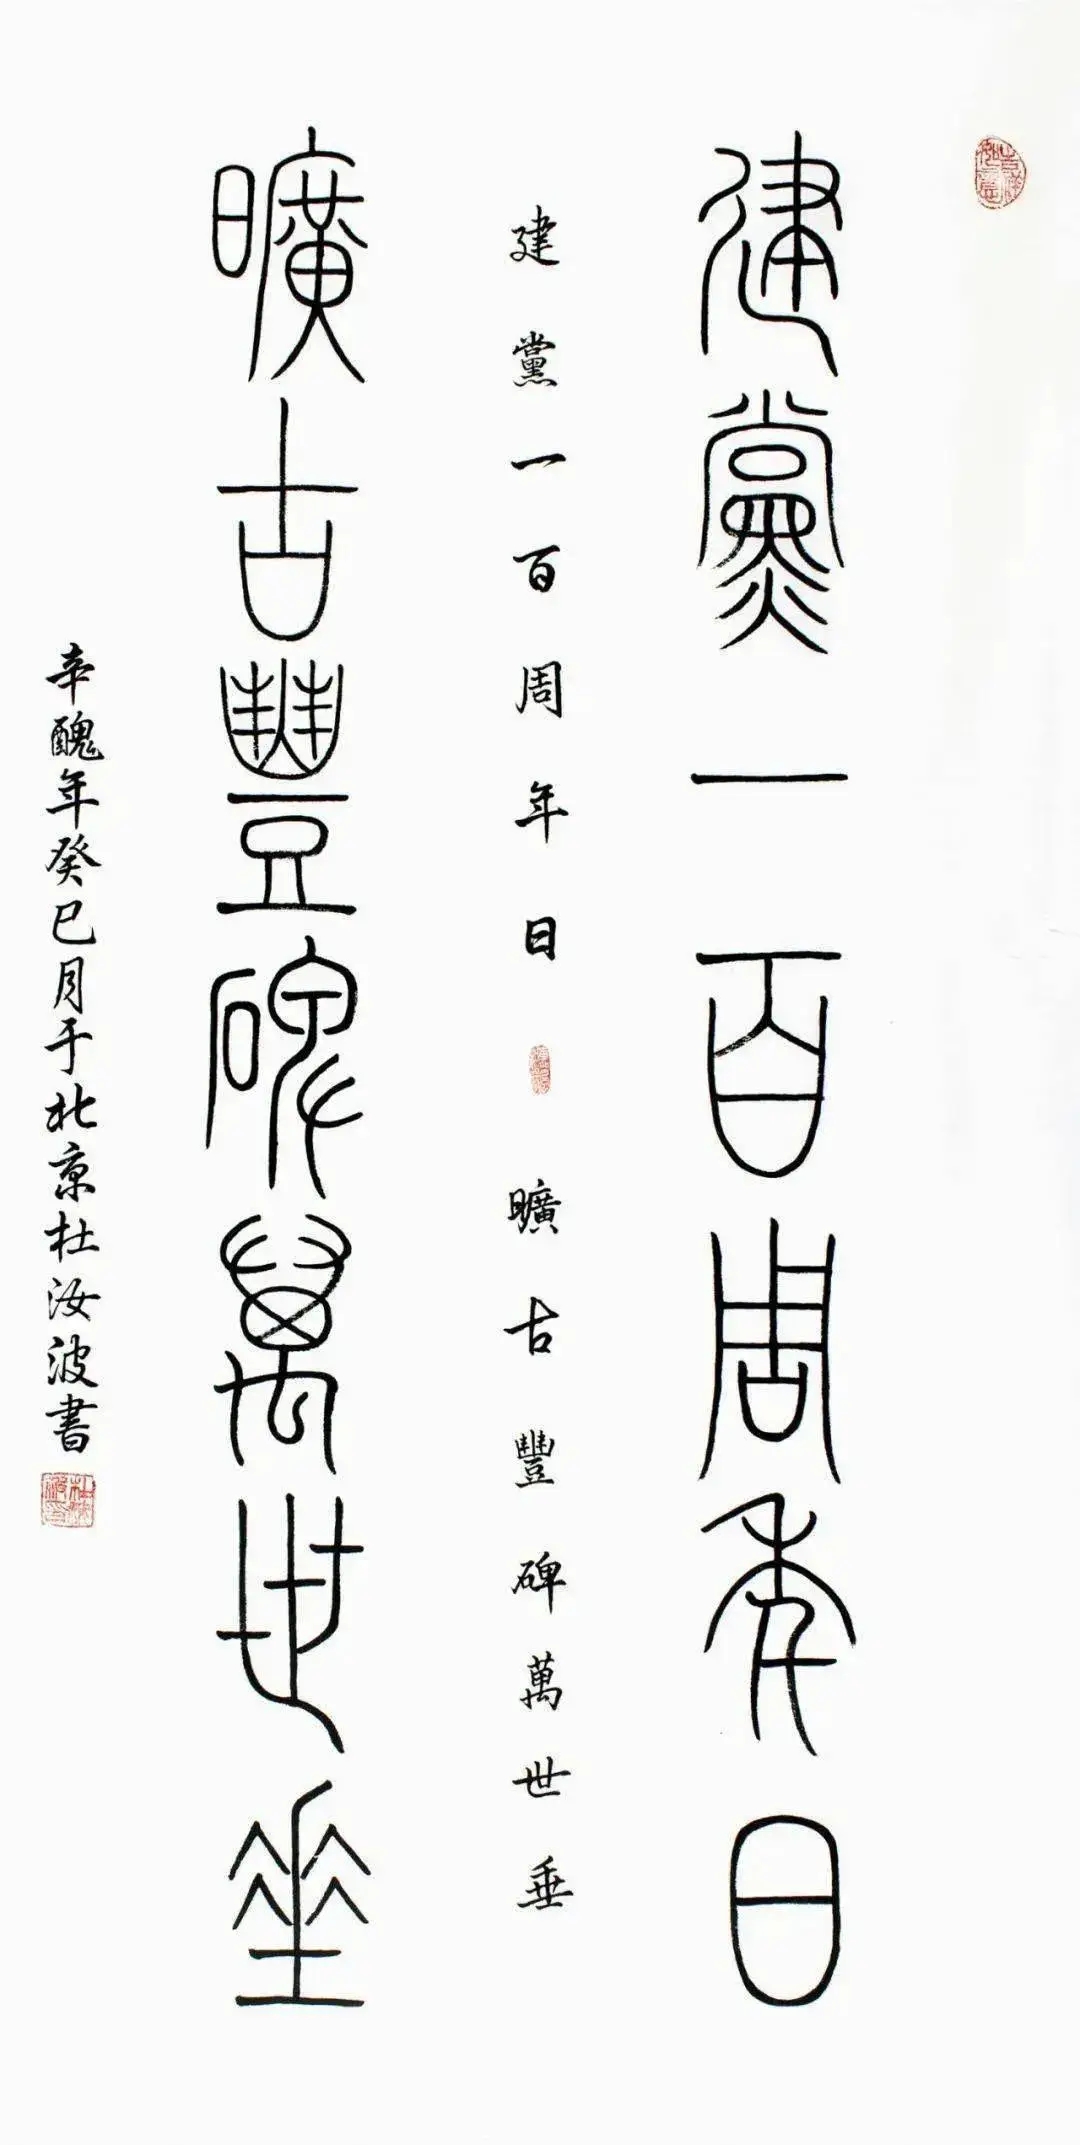 建黨一百周年日
建黨一百周年日
曠古豐碑萬世垂
曠古豐碑萬世垂
辛醜年癸巳月于北京杜汝波書